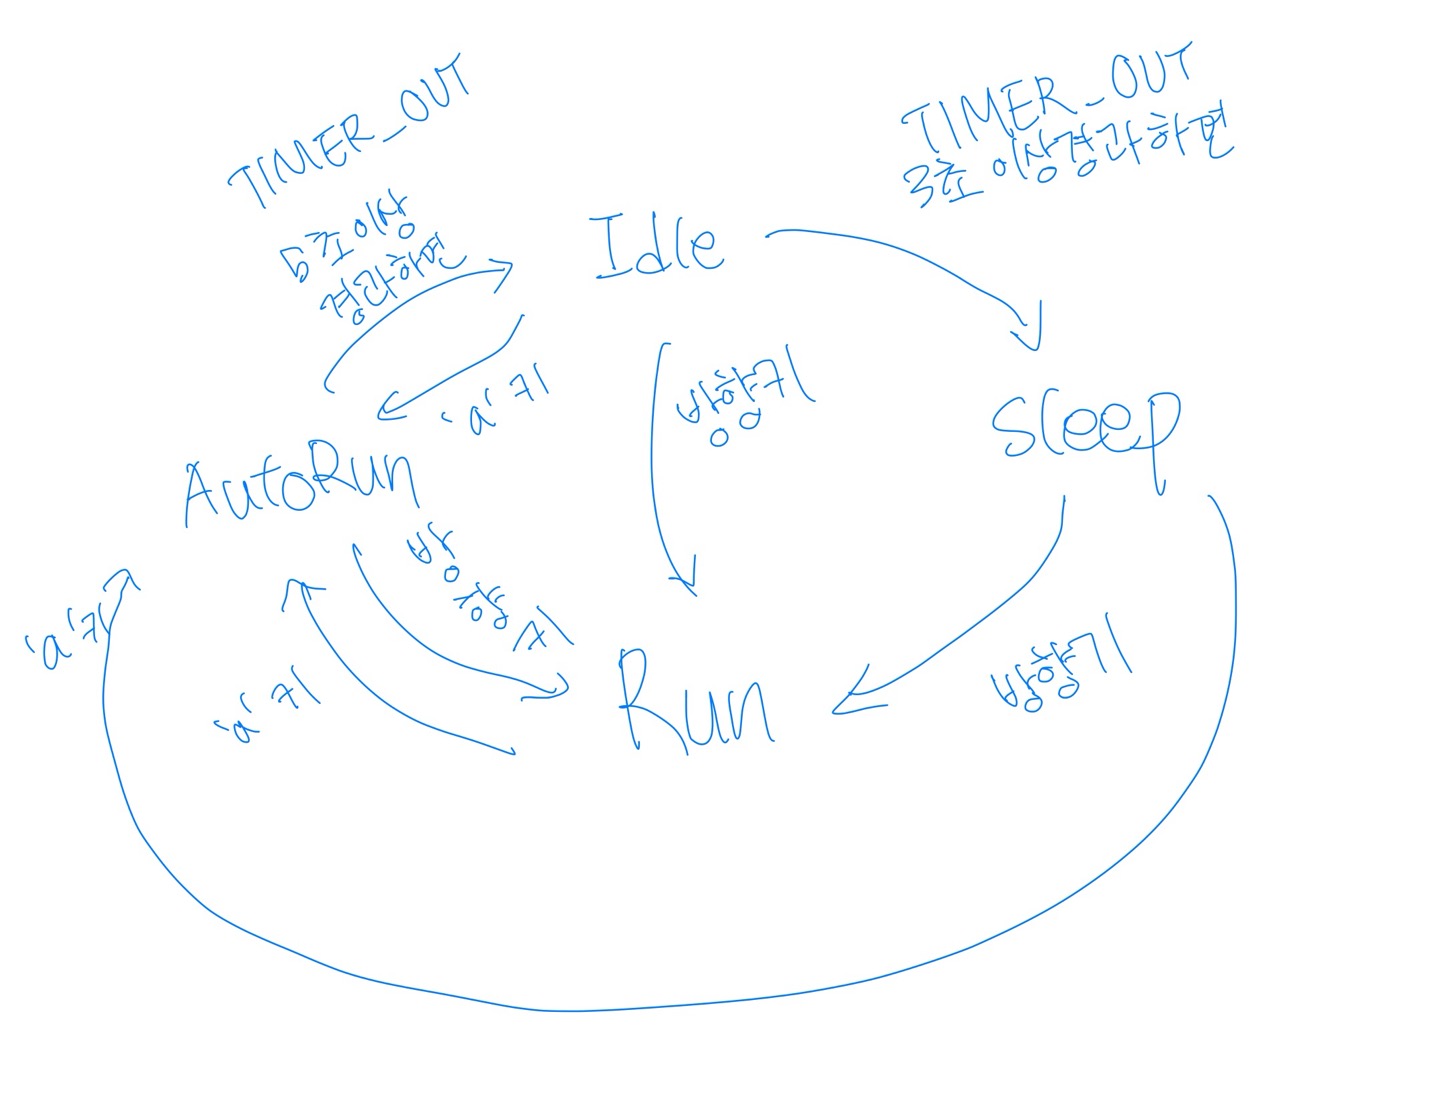 TIMER_OUT
5초 이상
경과하면
TIMER_OUT
3초 이상 경과하면
Idle
'a' 키
방향키
Sleep
AutoRun
방향키
'a' 키
'a' 키
Run
방향키